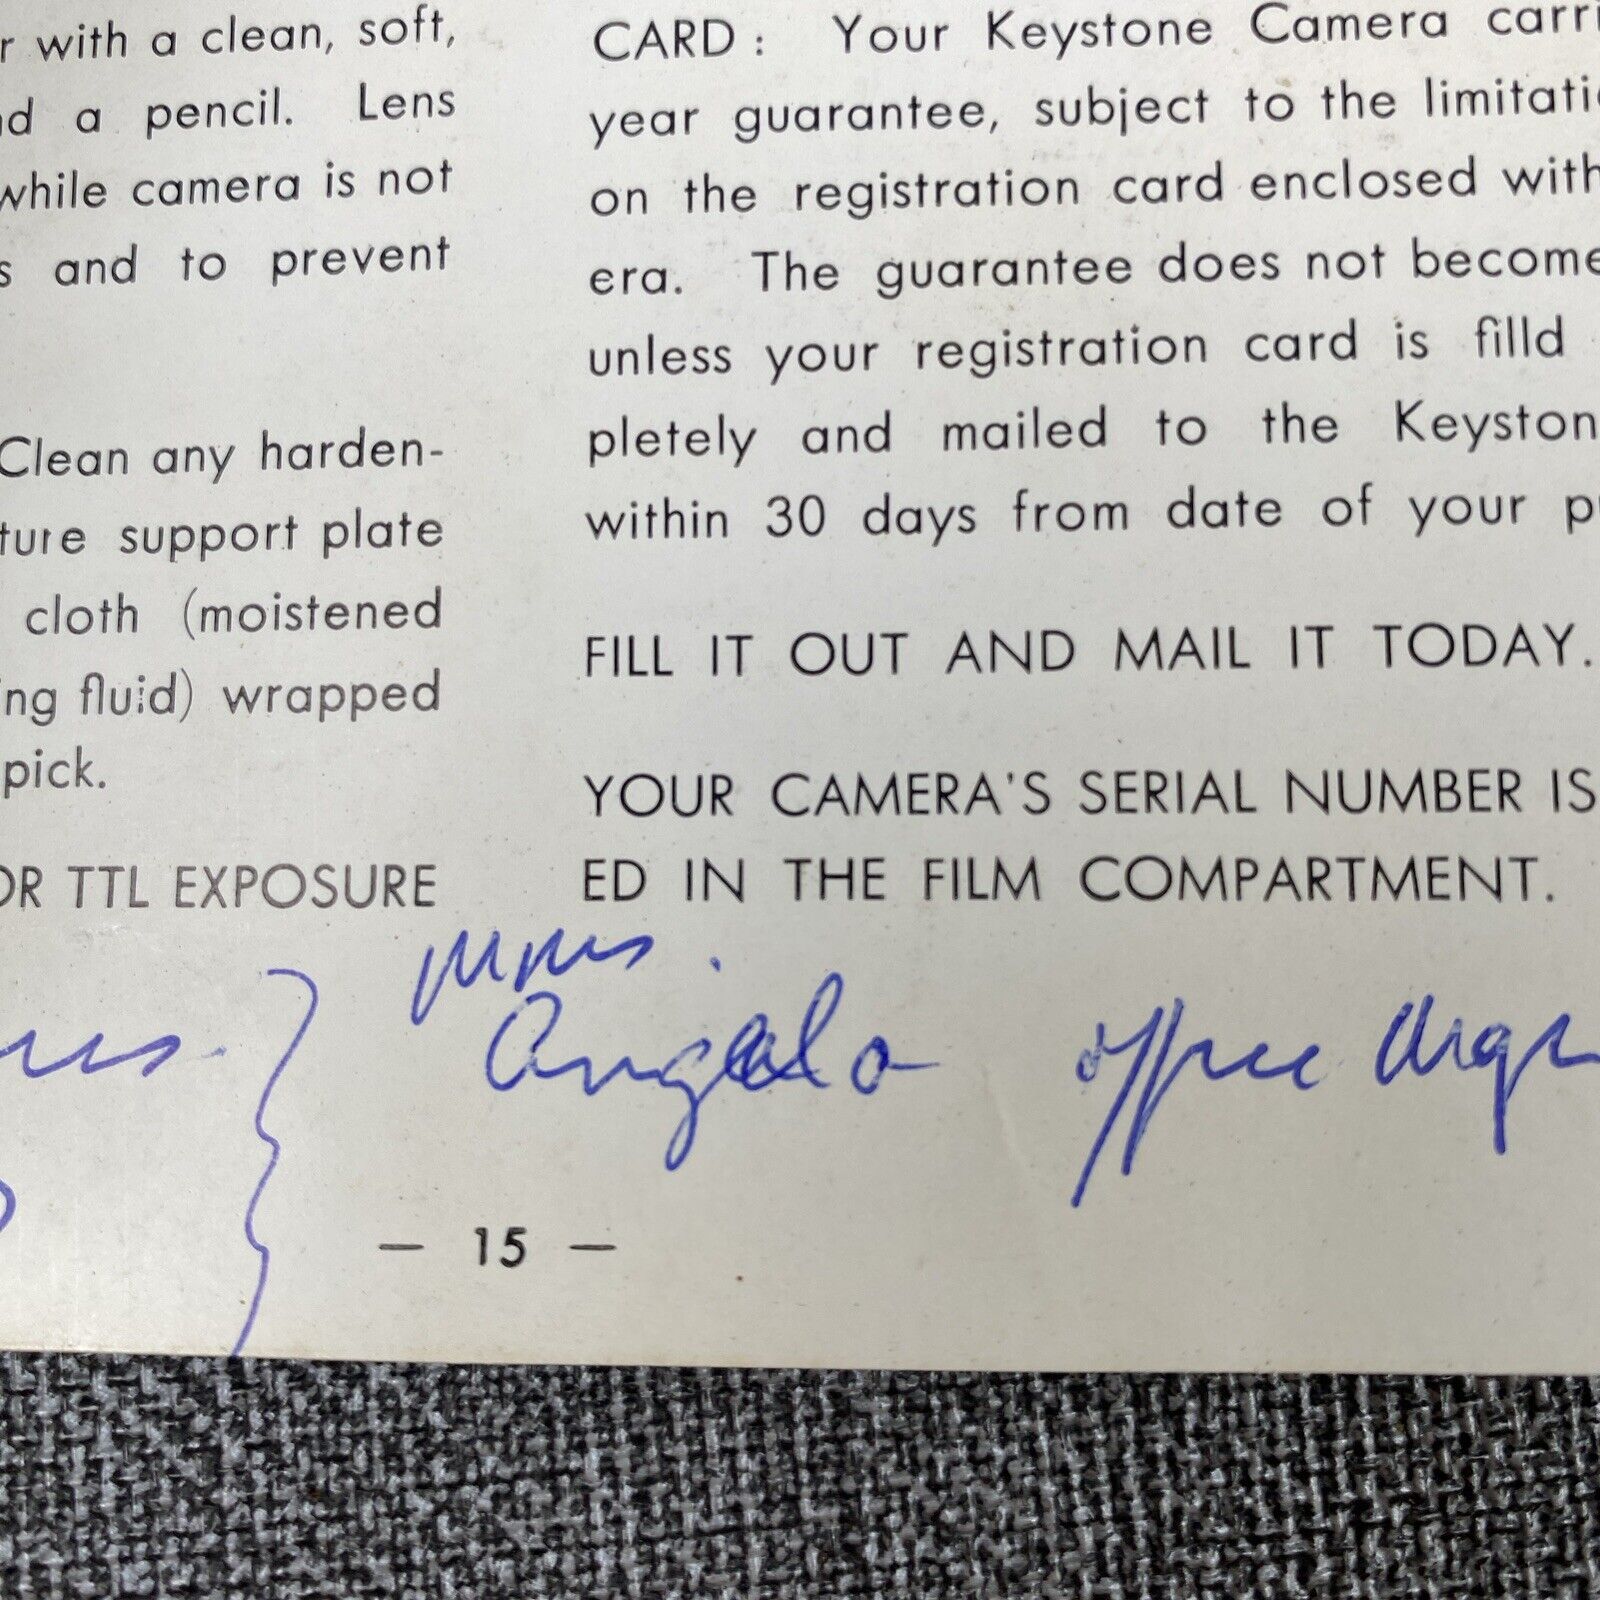 r with a clean, soft,
nd a pencil. Lens
while camera is not
s and to prevent
Clean any harden-
ture support plate
cloth (moistened
ing fluid) wrapped
pick.
OR TTL EXPOSURE
CARD : Your Keystone Camera carri
year guarantee, subject to the limitatio
on the registration card enclosed with
era. The guarantee does not become
unless your registration card is filld
pletely and mailed to the Keyston
within 30 days from date of your pu
FILL IT OUT AND MAIL IT TODAY.
YOUR CAMERA'S SERIAL NUMBER IS
ED IN THE FILM COMPARTMENT.
Angelo
— 15 —